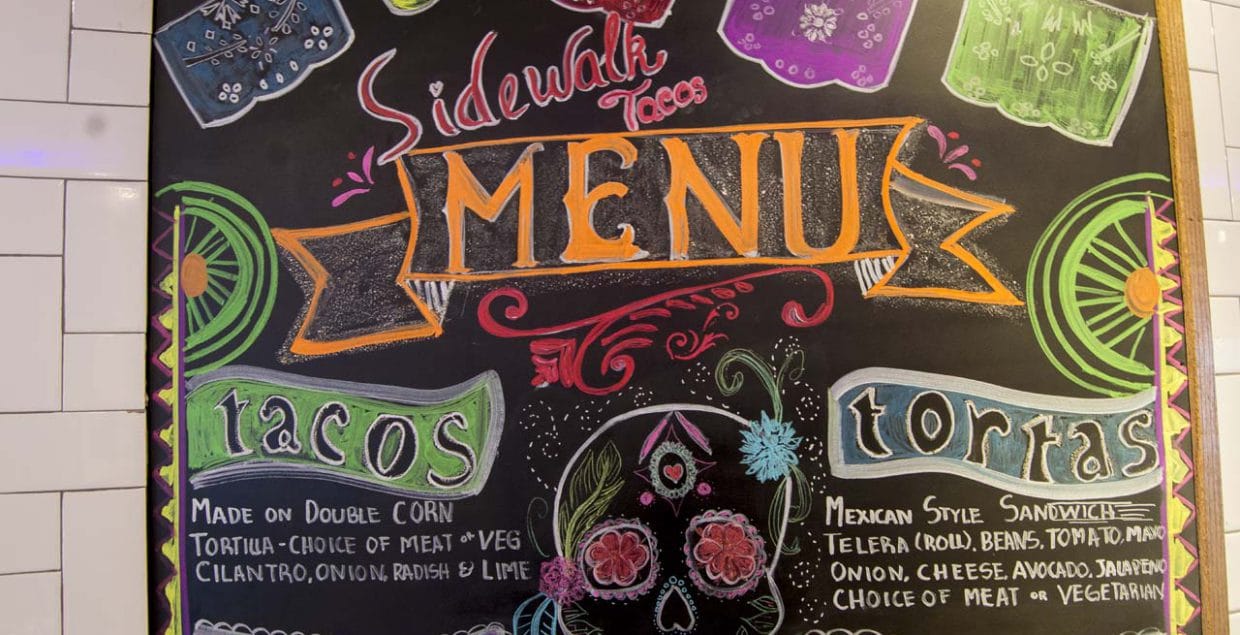 Sidewalk
Tacos
MENU
tacos
MADE ON DOUBLE CORN
TORTILLA - CHOICE OF MEAT or VEG
CILANTRO, ONION, RADISH & LIME
tortas
MEXICAN STYLE SANDWICH
TELERA (ROLL), BEANS, TOMATO, MAYO
ONION, CHEESE, AVOCADO, JALAPENO
CHOICE OF MEAT OR VEGETARIAN